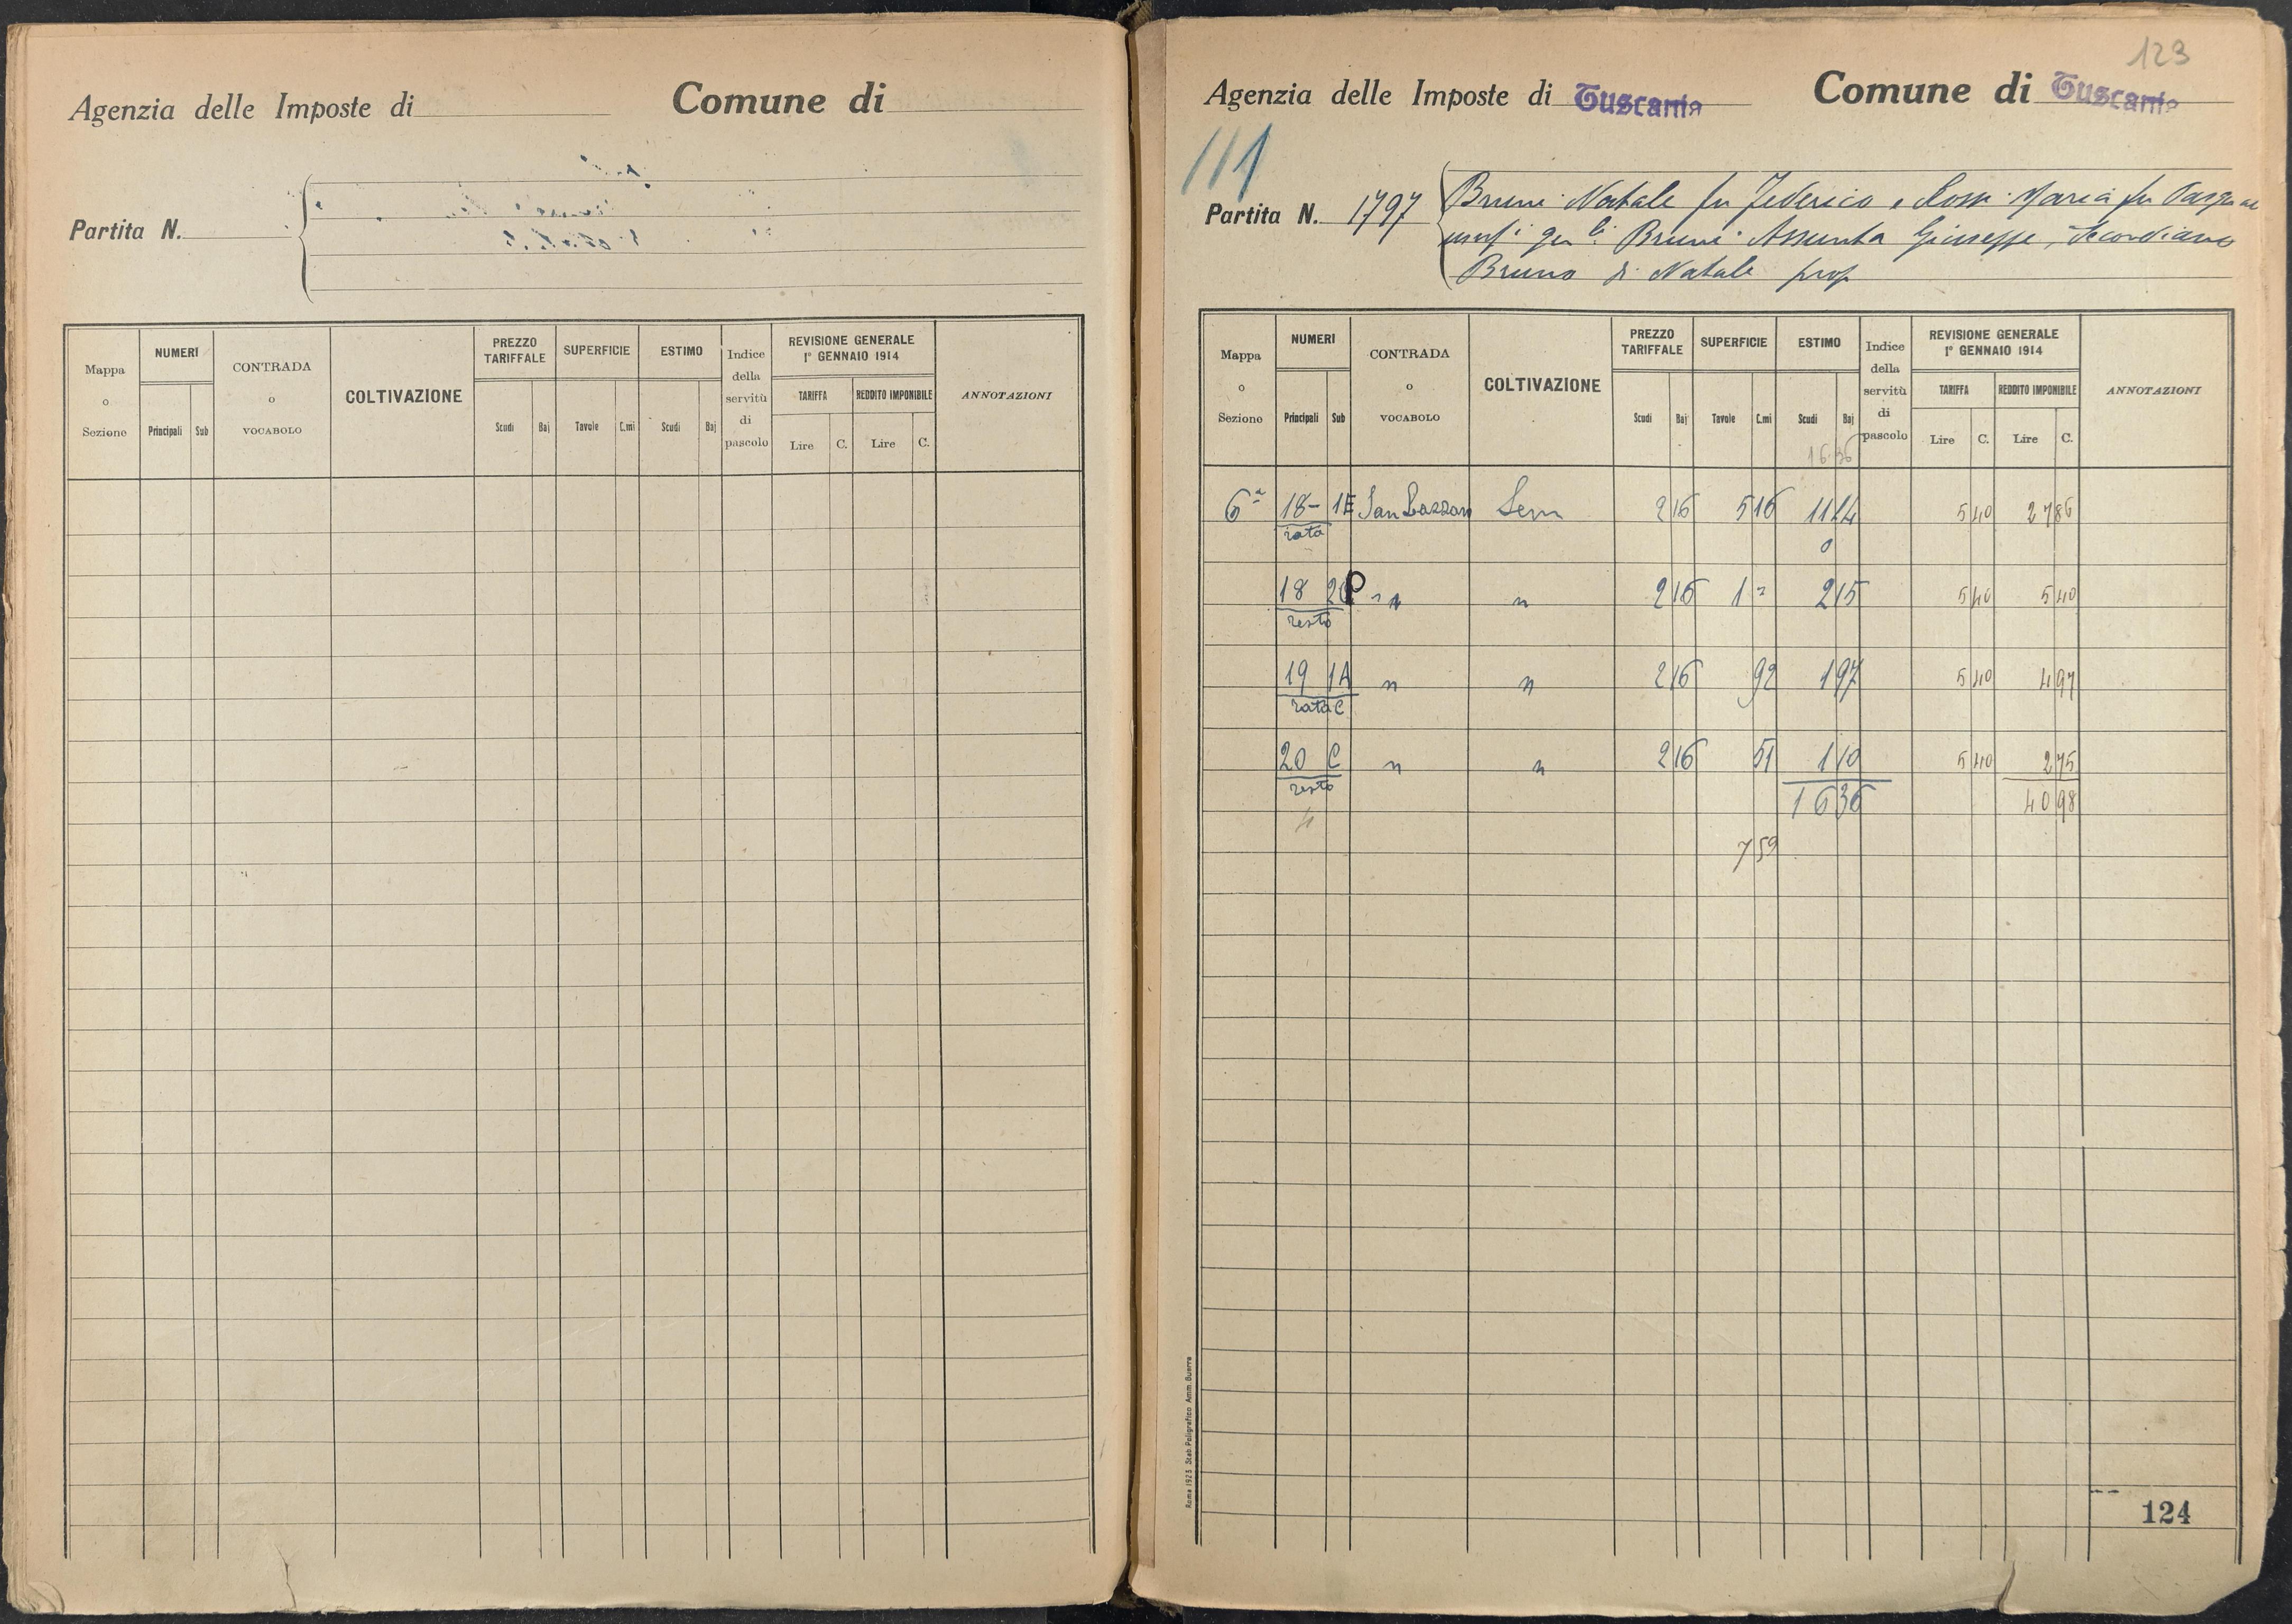 Agenzia delle Imposte di
Comune di
Partita N.
Mappa o Sezione
NUMERI
Principali Sub
CONTRADA o VOCABOLO
COLTIVAZIONE
PREZZO TARIFFALE
Scudi Baj
SUPERFICIE
Tavole C.mi
ESTIMO
Scudi Baj
Indice della servitù di pascolo
REVISIONE GENERALE
1° GENNAIO 1914
TARIFFA
Lire C.
REDDITO IMPONIBILE
Lire C.
ANNOTAZIONI
123
Agenzia delle Imposte di Tuscania
Comune di Tuscania
111
Partita N. 1797
Bruni Natale fu Federico e Rossi Maria fu
Bruni Assunta Giuseppe, Secondiano
Bruno di Natale prop
Mappa o Sezione
NUMERI
Principali Sub
CONTRADA o VOCABOLO
COLTIVAZIONE
PREZZO TARIFFALE
Scudi Baj
SUPERFICIE
Tavole C.mi
ESTIMO
Scudi Baj
16 36
Indice della servitù di pascolo
REVISIONE GENERALE
1° GENNAIO 1914
TARIFFA
Lire C.
REDDITO IMPONIBILE
Lire C.
ANNOTAZIONI
6ª 18- 1E San Lazzaro Sem 2 16 5 16 11 14 5 40 27 86
rata
18 2 " " 2 16 1 = 2 15 5 40 5 40
resto
19 1A " " 2 16 92 1 97 5 40 4 97
rata C
20 C " " 2 16 51 1 10 5 40 2 75
resto
16 36 40 98
4
7 59
Roma 1923 Stab. Poligrafico Amm. Guerra
124